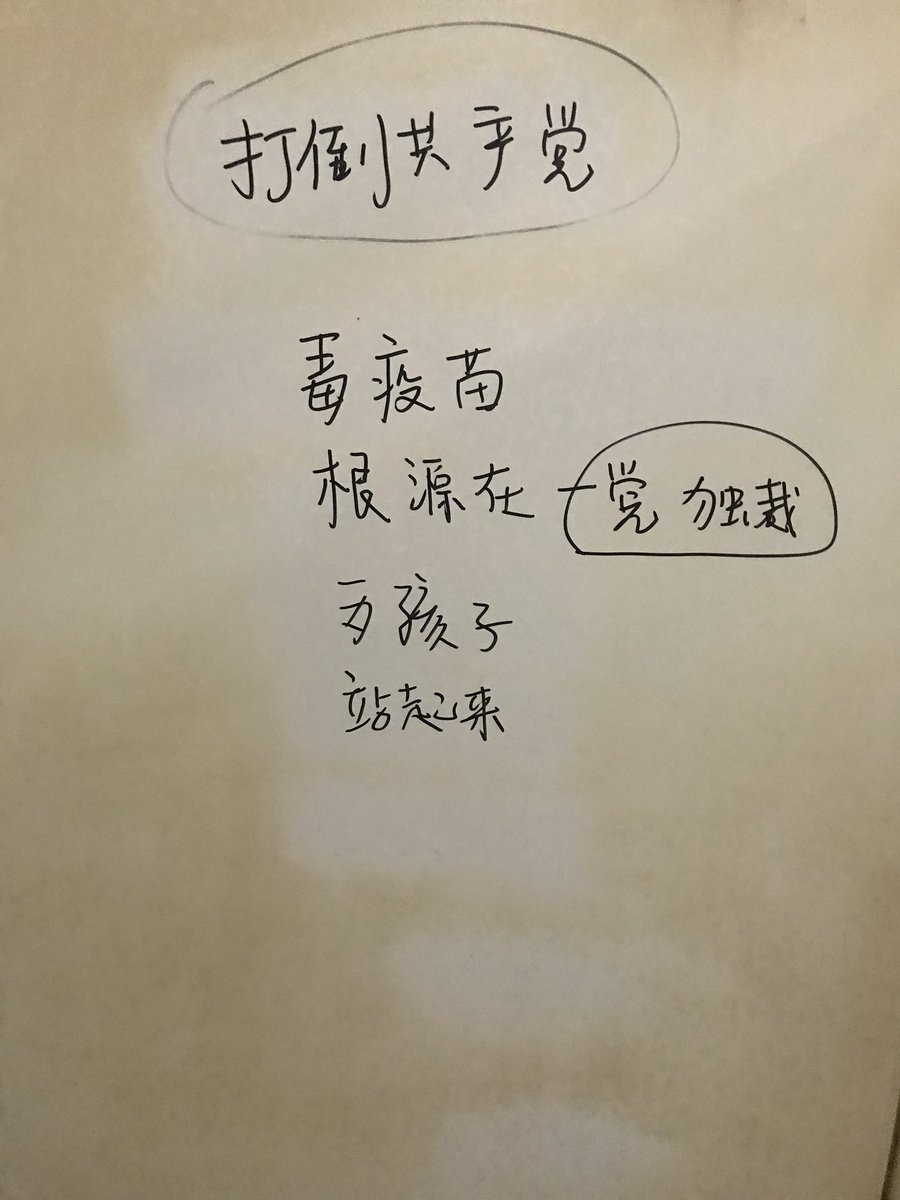 打倒共产党
毒疫苗
根源在一党独裁
为孩子
站起来